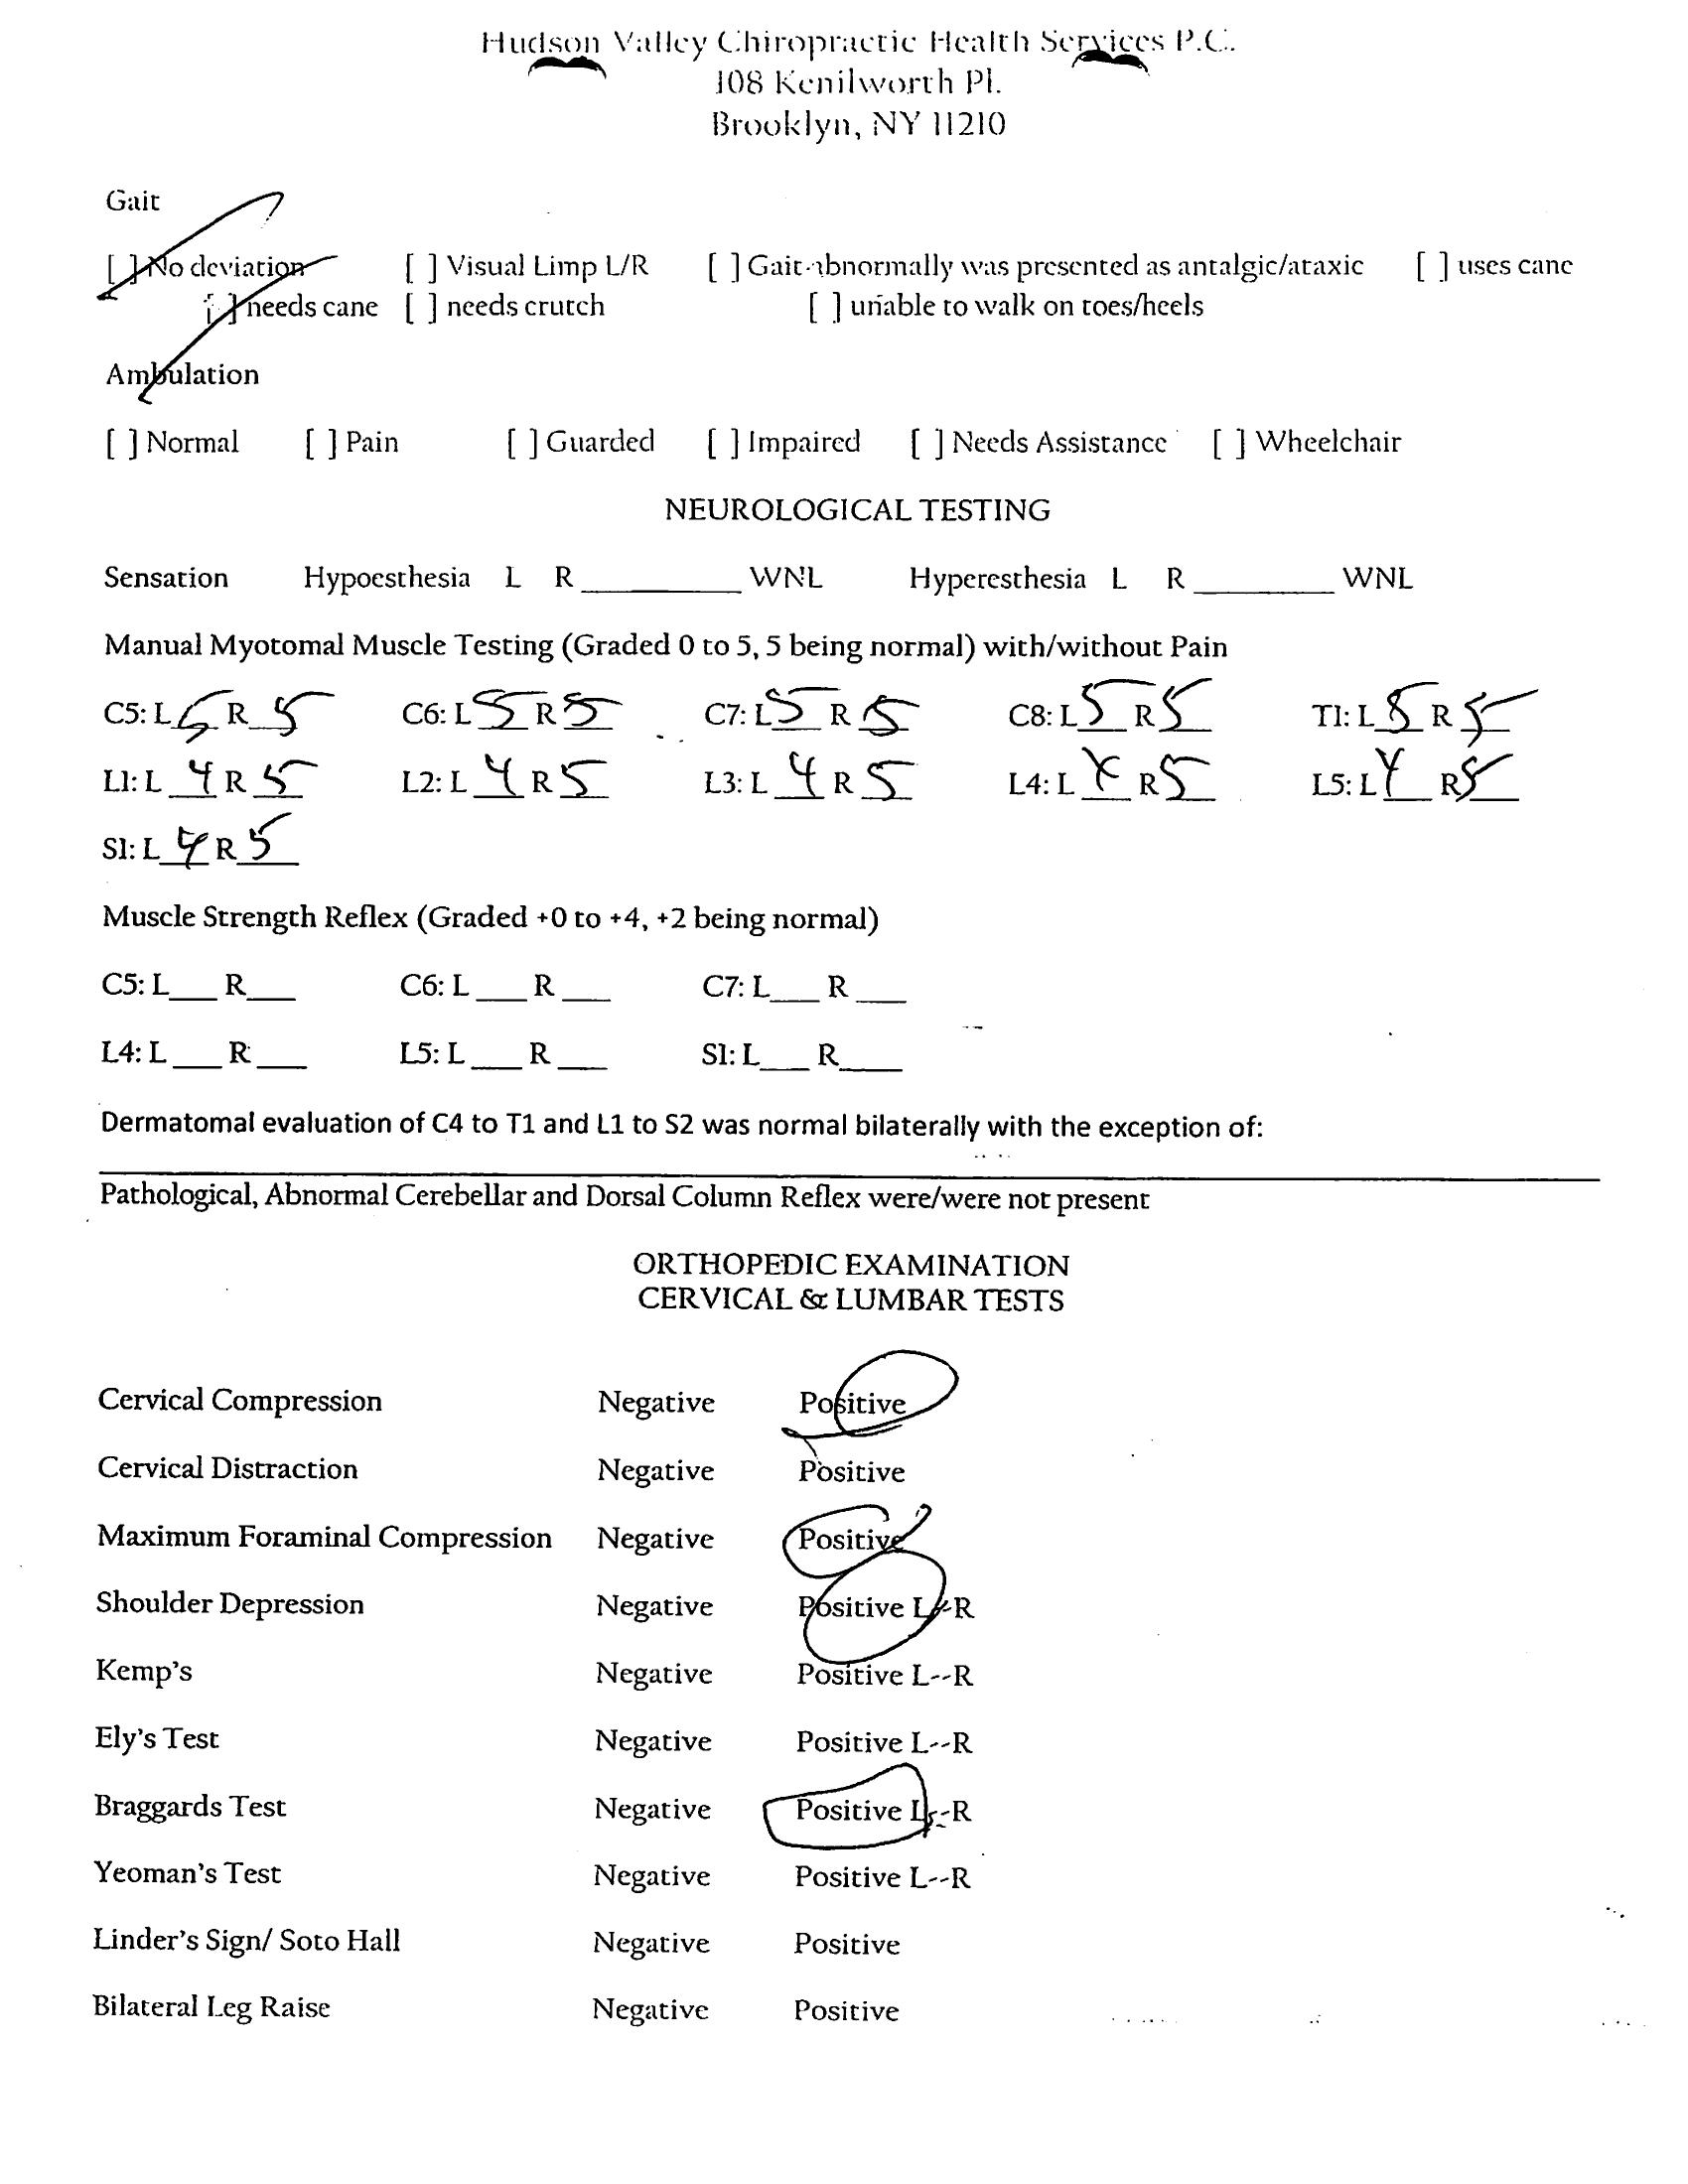 Hudson Valley Chiropractic Health Services P.C.
108 Kenilworth Pl.
Brooklyn, NY 11210
Gait
[ ] No deviation [ ] Visual Limp L/R [ ] Gait abnormally was presented as antalgic/ataxic [ ] uses cane
[ ] needs cane [ ] needs crutch [ ] unable to walk on toes/heels
Ambulation
[ ] Normal [ ] Pain [ ] Guarded [ ] Impaired [ ] Needs Assistance [ ] Wheelchair
NEUROLOGICAL TESTING
Sensation Hypoesthesia L R________ WNL Hyperesthesia L R________ WNL
Manual Myotomal Muscle Testing (Graded 0 to 5, 5 being normal) with/without Pain
C5: L 5 R 5 C6: L 5 R 5 C7: L 5 R 5 C8: L 5 R 5 T1: L 5 R 5
L1: L 4 R 5 L2: L 4 R 5 L3: L 4 R 5 L4: L 4 R 5 L5: L 4 R 5
S1: L 4 R 5
Muscle Strength Reflex (Graded +0 to +4, +2 being normal)
C5: L___ R___ C6: L___ R___ C7: L___ R___
L4: L___ R___ L5: L___ R___ S1: L___ R___
Dermatomal evaluation of C4 to T1 and L1 to S2 was normal bilaterally with the exception of:
Pathological, Abnormal Cerebellar and Dorsal Column Reflex were/were not present
ORTHOPEDIC EXAMINATION
CERVICAL & LUMBAR TESTS
Cervical Compression Negative Positive
Cervical Distraction Negative Positive
Maximum Foraminal Compression Negative Positive
Shoulder Depression Negative Positive L--R
Kemp's Negative Positive L--R
Ely's Test Negative Positive L--R
Braggards Test Negative Positive L--R
Yeoman's Test Negative Positive L--R
Linder's Sign/ Soto Hall Negative Positive
Bilateral Leg Raise Negative Positive